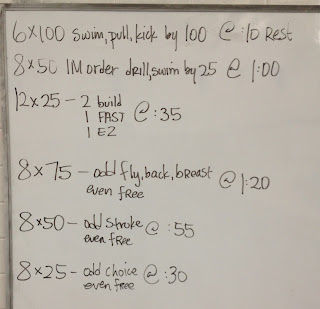 6x100 swim, pull, kick by 100 @ :10 Rest
8x50 IM order drill, swim by 25 @ 1:00
12x25 - 2 build
1 FAST @ :35
1 EZ
8x75 - odd fly, back, breast @ 1:20
even free
8x50 - odd stroke @ :55
even free
8x25 - odd choice @ :30
even free